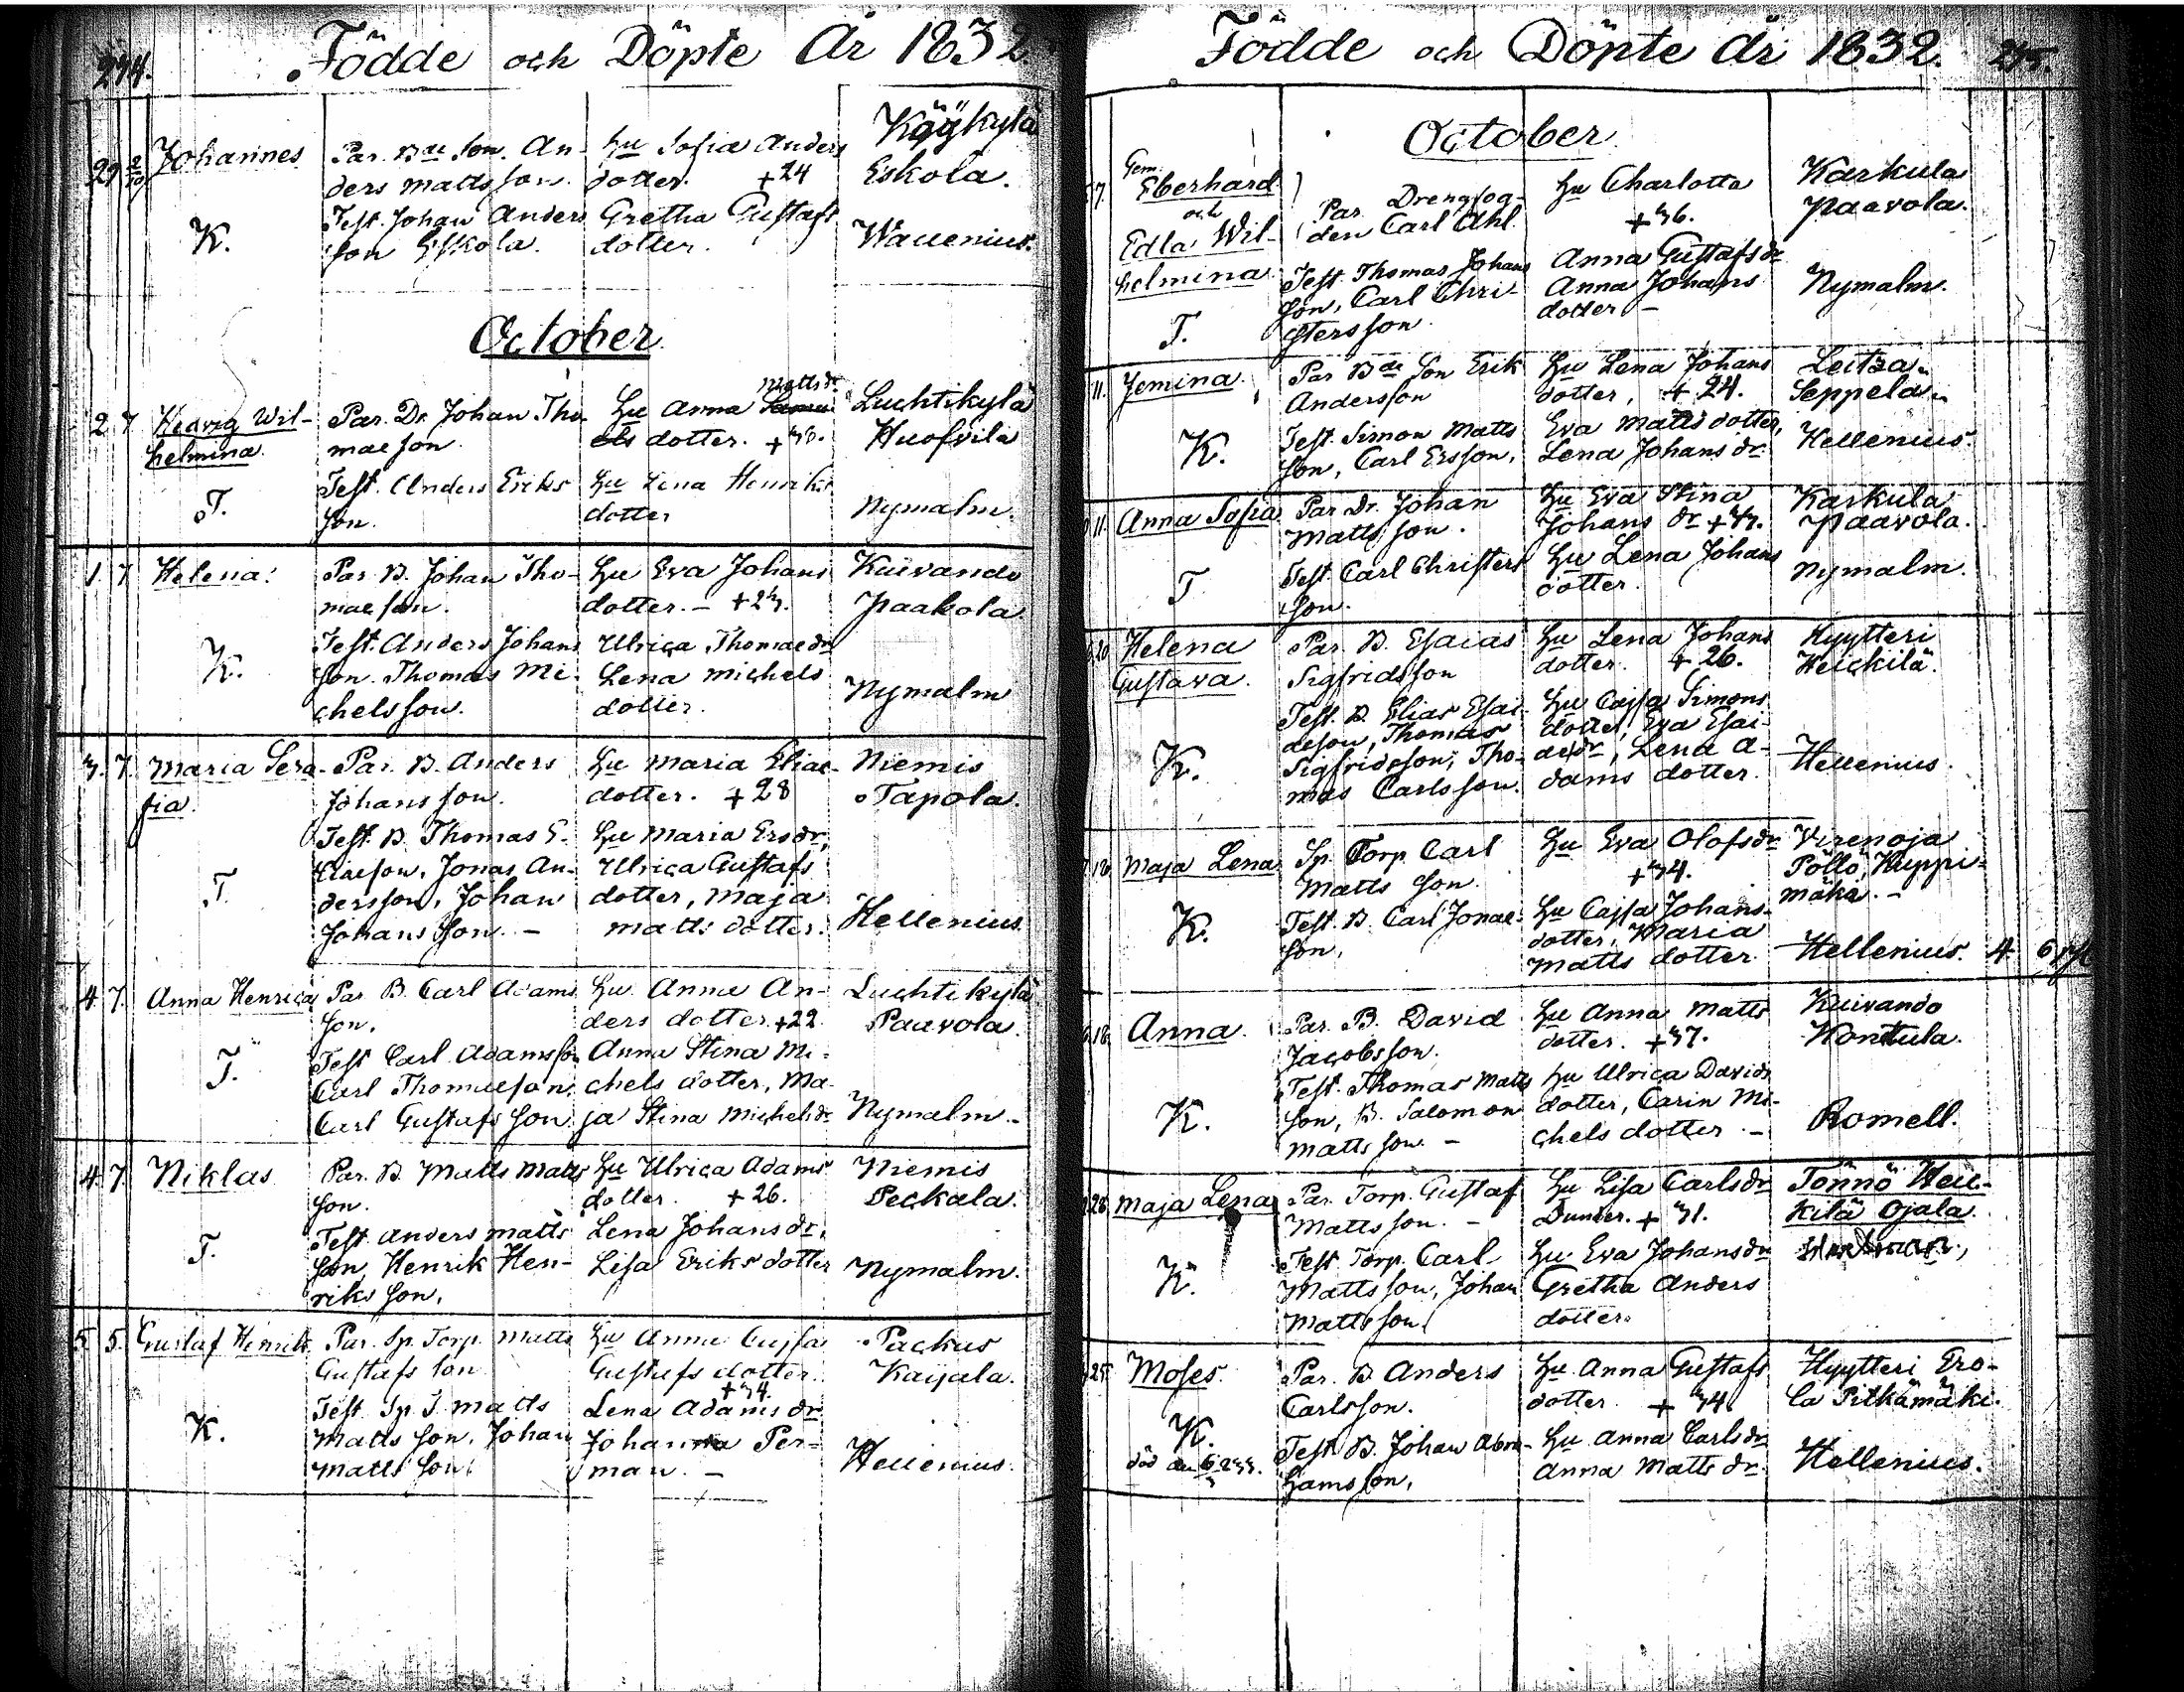 274.
Födde och Döpte År 1832.
29 2/10 Johannes
K.
Par. Bde Son. An-
ders Mattsson.
Test. Johan Anders
son Eskola.
Hu Sofia Anders
dotter. +24
Gretha Gustafs
dotter.
Köykylä
Eskola.
Wallenius.
October
2 7 Hedvig Wil-
helmina
T.
Par. Dr. Johan Tho-
mae son
Test. Anders Eriks
son.
Matts dr
Hu Anna
dotter. +36.
Hu Lena Henriks
dotter
Luchtikylä
Huofvila
Nymalm.
1. 7 Helena.
K.
Par. B. Johan Tho-
mae son.
Test. Anders Johans
son. Thomas Mi-
chels son.
Hu Eva Johans
dotter. – +23.
Ulrica Thomae dr
Lena Michels
dotter.
Kuivando
Paakola.
Nymalm
3. 7. Maria Sera-
fia.
T.
Par. B. Anders
Johansson.
Test. B. Thomas E-
liaeson, Jonas An-
dersson, Johan
Johansson. –
Hu Maria Eliae-
dotter. +28
Hu Maria Ersdr,
Ulrica Gustafs
dotter, Maja
Matts dotter.
Niemis
Tapola.
Hellenius.
4. 7. Anna Henrica
T.
Par. B. Carl Adams
son.
Test Carl Adamsson
Carl Thomaeson.
Carl Gustafs son
Hu. Anna An-
ders dotter. +22
Anna Stina Mi-
chels dotter, Ma-
ja Stina Michels dr
Luchtikylä
Paavola.
Nymalm. –
4. 7. Niklas
T.
Par. B. Matts Matts
son.
Test. Anders Matts
son, Henrik Hen-
riks son.
Hu Ulrica Adams
dotter. +26.
Lena Johans dr,
Lisa Eriks dotter
Niemis
Peckala.
Nymalm.
5. 5. Gustaf Henrik
K.
Par. Sp. Torp. Matts
Gustafs son
Test Sp. T. Matts
Matts son, Johan
Matts son
Hu Anna Cajsa
Gustafs dotter.
+34.
Lena Adams dr
Johanna Per-
man. –
Packus
Kaijala.
Hellenius.
Födde och Döpte År 1832. 275.
October
7. Gem.
Eberhard
och
Edla Wil-
helmina
T.
Par. Drengfog-
den Carl Ahl.
Test. Thomas Johans
son, Carl Chri-
sters son
Hu Charlotta
+36.
Anna Gustafs dr
Anna Johans
dotter –
Karkula
Paavola.
Nymalm.
11. Jemina
K.
Par Bde Son Erik
Andersson
Test. Simon Matts
son, Carl Ersson,
Hu Lena Johans
dotter, +24.
Eva Matts dotter,
Lena Johans dr
Leitza
Seppela
Hellenius.
11. Anna Sofia
T
Par Dr. Johan
Matts son.
Test. Carl Christers
son.
Hu Eva Stina
Johans dr +33.
Hu Lena Johans
dotter.
Karkula
Paavola.
Nymalm.
20 Helena
Gustava.
K.
Par. B. Esaias
Sigfridsson
Test. B. Elias Esai-
aeson, Thomas
Sigfridsson, Tho-
mas Carlsson.
Hu Lena Johans
dotter. +26.
Hu Cajsa Simons
dotter, Eva Esai-
aedr, Lena A-
dams dotter.
Hyytteri
Heickilä.
Hellenius.
Maja Lena
K.
Sp. Torp. Carl
Matts son.
Test. B. Carl Jonae-
son,
Hu Eva Olofsdr
+34.
Hu Cajsa Johans-
dotter, Maria
Matts dotter
Virenoja
Pöllö, Kuppi-
mäka. –
Hellenius. 4 6
18. Anna.
K.
Par. B. David
Jacobsson.
Test. Thomas Matts
son, B. Salomon
Matts son –
Hu Anna Matts
dotter. +37.
Hu Ulrica Davids
dotter, Carin Mi-
chels dotter –
Kuivando
Konttula.
Romell.
28 Maja Lena
K.
Par. Torp. Gustaf
Matts son. –
Test. Torp. Carl
Mattsson, Johan
Mattsson
Hu Lisa Carlsdr
Dunder. +31.
Hu Eva Johans dr
Gretha Anders
dotter.
Tönnö Hei-
kilä Ojala.
25. Moses.
K.
Par. B. Anders
Carlsson.
Test. B. Johan Abra-
hamsson,
Hu Anna Gustafs
dotter. +34.
Hu Anna Carlsdr
Anna Matts dr
Hyytteri Ero-
la Pitkämäki.
Hellenius.